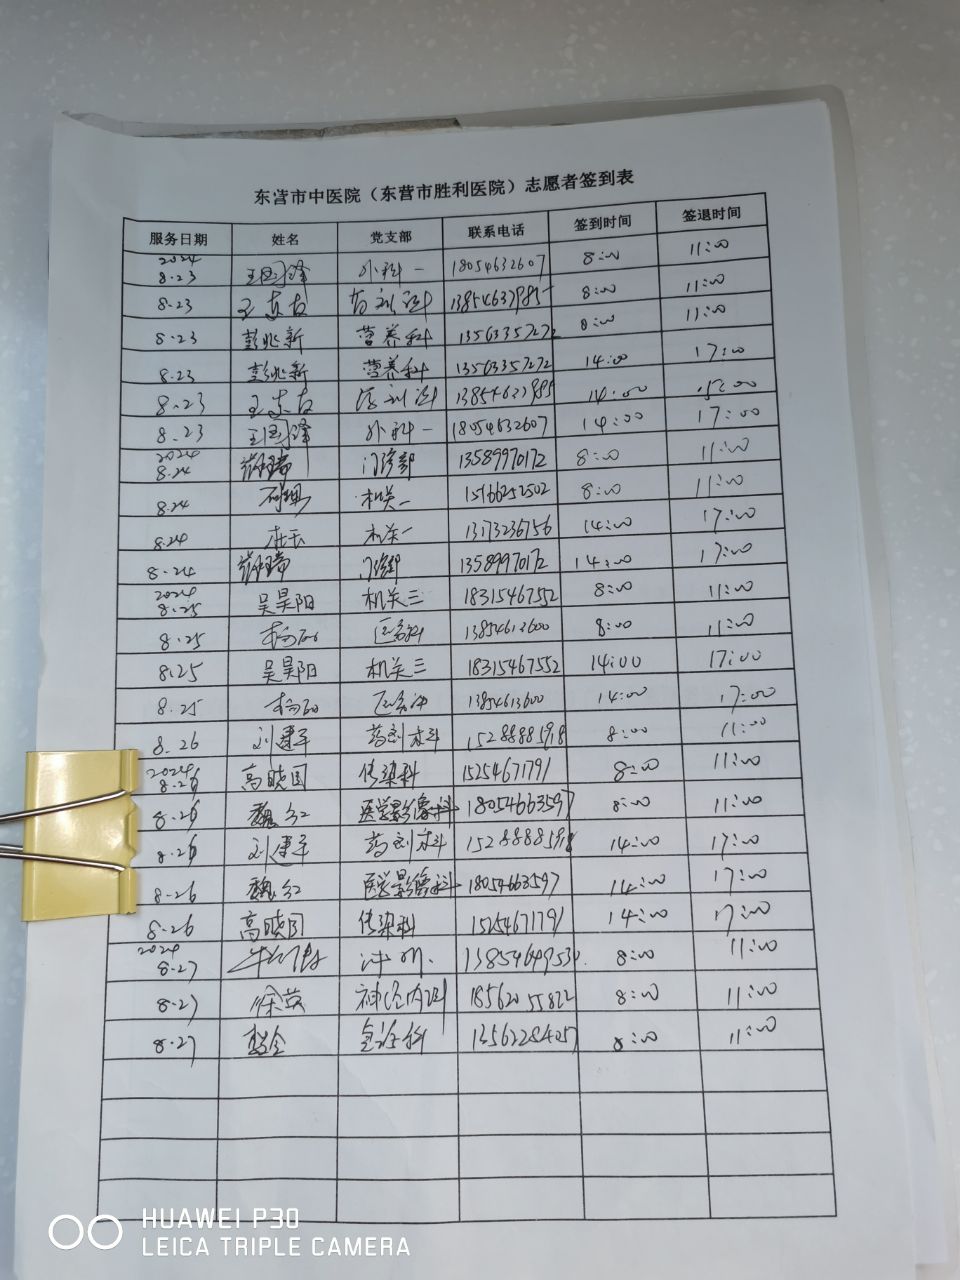 东营市中医院（东营市胜利医院）志愿者签到表
服务日期 姓名 党支部 联系电话 签到时间 签退时间
2024 8.23 王国锋 外科一 18054632607 8:00 11:00
8.23 8:00 11:00
8.23 彭兆新 营养科 13563357272 8:00 11:00
8.23 彭兆新 营养科 13563357272 14:00 17:00
8.23 14:00
8.23 王国锋 外科一 18054632607 14:00 17:00
2024 8.24 门诊部 13589970172 8:00 11:00
8.24 机关一 15166252502 8:00 11:00
8.24 机关一 13173236756 14:00 17:00
8.24 门诊部 13589970172 14:00 17:00
2024 8.25 吴昊阳 机关三 18315467552 8:00 11:00
8.25 13854613600 8:00 11:00
8.25 吴昊阳 机关三 18315467552 14:00 17:00
8.25 13854613600 14:00 17:00
8.26 刘建军 药剂科 8:00 11:00
2024 8.26 高晓国 传染科 15254671791 8:00 11:00
8.26 魏红 医学影像科 18054663597 8:00 11:00
8.26 刘建军 药剂科 14:00 17:00
8.26 魏红 医学影像科 18054663597 14:00 17:00
8.26 高晓国 传染科 15254671791 14:00 17:00
2024 8.27 8:00 11:00
8.27 徐英 神经内科 18562055822 8:00 11:00
8.27 13562284057 8:00 11:00
HUAWEI P30
LEICA TRIPLE CAMERA